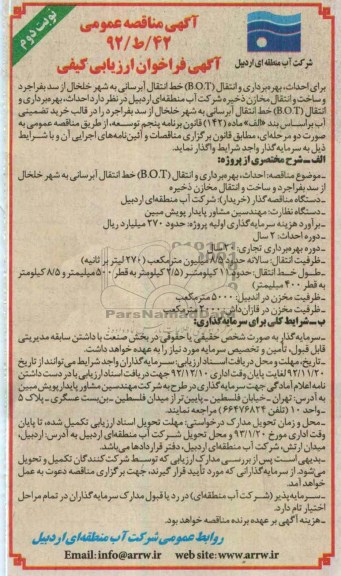 نوبت دوم
آگهی مناقصه عمومی
۹۲/ط/۴۲
آگهی فراخوان ارزیابی کیفی
شرکت آب منطقه ای اردبیل
برای احداث، بهره‌برداری و انتقال (B.O.T) خط انتقال آبرسانی به شهر خلخال از سد بفراجرد
و ساخت و انتقال مخازن ذخیره شرکت آب منطقه‌ای اردبیل در نظر دارد احداث، بهره‌برداری و
انتقال (B.O.T) خط انتقال آبرسانی به شهر خلخال از سد بفراجرد را در قالب خرید تضمینی
آب براساس بند «الف» ماده (۱۴۲) قانون برنامه پنجم توسعه، از طریق مناقصه عمومی به
صورت دو مرحله‌ای، مطابق قانون برگزاری مناقصات و آئین‌نامه‌های اجرایی آن و با شرایط
ذیل به سرمایه‌گذار واجد شرایط واگذار نماید.
الف ـ شرح مختصری از پروژه:
ـ موضوع مناقصه: احداث، بهره‌برداری و انتقال (B.O.T) خط انتقال آبرسانی به شهر خلخال
از سد بفراجرد و ساخت و انتقال مخازن ذخیره
ـ دستگاه مناقصه گذار (خریدار): شرکت آب منطقه‌ای اردبیل
ـ دستگاه نظارت: مهندسین مشاور پایدار پویش مبین
ـ برآورد هزینه سرمایه‌گذاری اولیه پروژه: حدود ۲۷۰ میلیارد ریال
ـ دوره احداث: ۲ سال
ـ دوره بهره‌برداری تجاری: سال
ـ ظرفیت انتقال: سالانه حدود ۸/۵ میلیون مترمکعب (۲۷۰ لیتر بر ثانیه)
ـ طول خط انتقال: حدود ۱۱ کیلومتر (۲/۵ کیلومتر به قطر ۵۰۰ میلیمتر و ۸/۵ کیلومتر
به قطر ۴۰۰ میلیمتر)
ـ ظرفیت مخزن در اندبیل: ۵۰۰۰ مترمکعب
ـ ظرفیت مخزن در مترمکعب
ب ـ شرایط کلی برای سرمایه‌گذاری:
ـ سرمایه‌گذار به صورت شخص حقیقی یا حقوقی در بخش صنعت با داشتن سابقه مدیریتی
قابل قبول، تأمین و تخصیص سرمایه مورد نیاز را به عهده خواهد داشت.
ـ تاریخ، مهلت و محل دریافت اسناد ارزیابی: سرمایه‌گذاران واجد شرایط می‌توانند از تاریخ
لغایت پایان وقت اداری ۹۲/۱۲/۱۰ جهت دریافت اسناد ارزیابی با در دست داشتن
نامه اعلام آمادگی جهت سرمایه‌گذاری در طرح به شرکت مهندسین مشاور پایدار پویش مبین
به آدرس: تهران ـ خیابان فلسطین ـ پایین تر از میدان فلسطین ـ بن‌بست عسگری ـ پلاک ۵
ـ واحد ۱۰ (تلفن ۶۶۴۷۶۸۲۴) مراجعه نمایند.
ـ محل و زمان تحویل مدارک درخواستی: مهلت تحویل اسناد ارزیابی تکمیل شده، تا پایان
وقت اداری مورخ ۹۳/۱/۲۰ و محل تحویل شرکت آب منطقه‌ای اردبیل به آدرس: اردبیل،
میدان ارتش، شرکت آب منطقه‌ای اردبیل، دفتر قراردادها می‌باشد.
ـ بدیهی است پس از بررسی مدارک ارزیابی که توسط شرکت‌کنندگان تکمیل و تحویل
می‌شود، از سرمایه‌گذارانی که مورد تأیید قرار گیرند، جهت برگزاری مناقصه دعوت به عمل
خواهد آمد.
ـ سرمایه‌پذیر (شرکت آب منطقه‌ای) در رد یا قبول مدارک سرمایه‌گذاران در تمام مراحل
اختیار تام دارد.
ـ هزینه آگهی بر عهده برنده مناقصه خواهد بود.
روابط عمومی شرکت آب منطقه‌ای اردبیل
Email: info@arrw.ir web site: www.arrw.ir